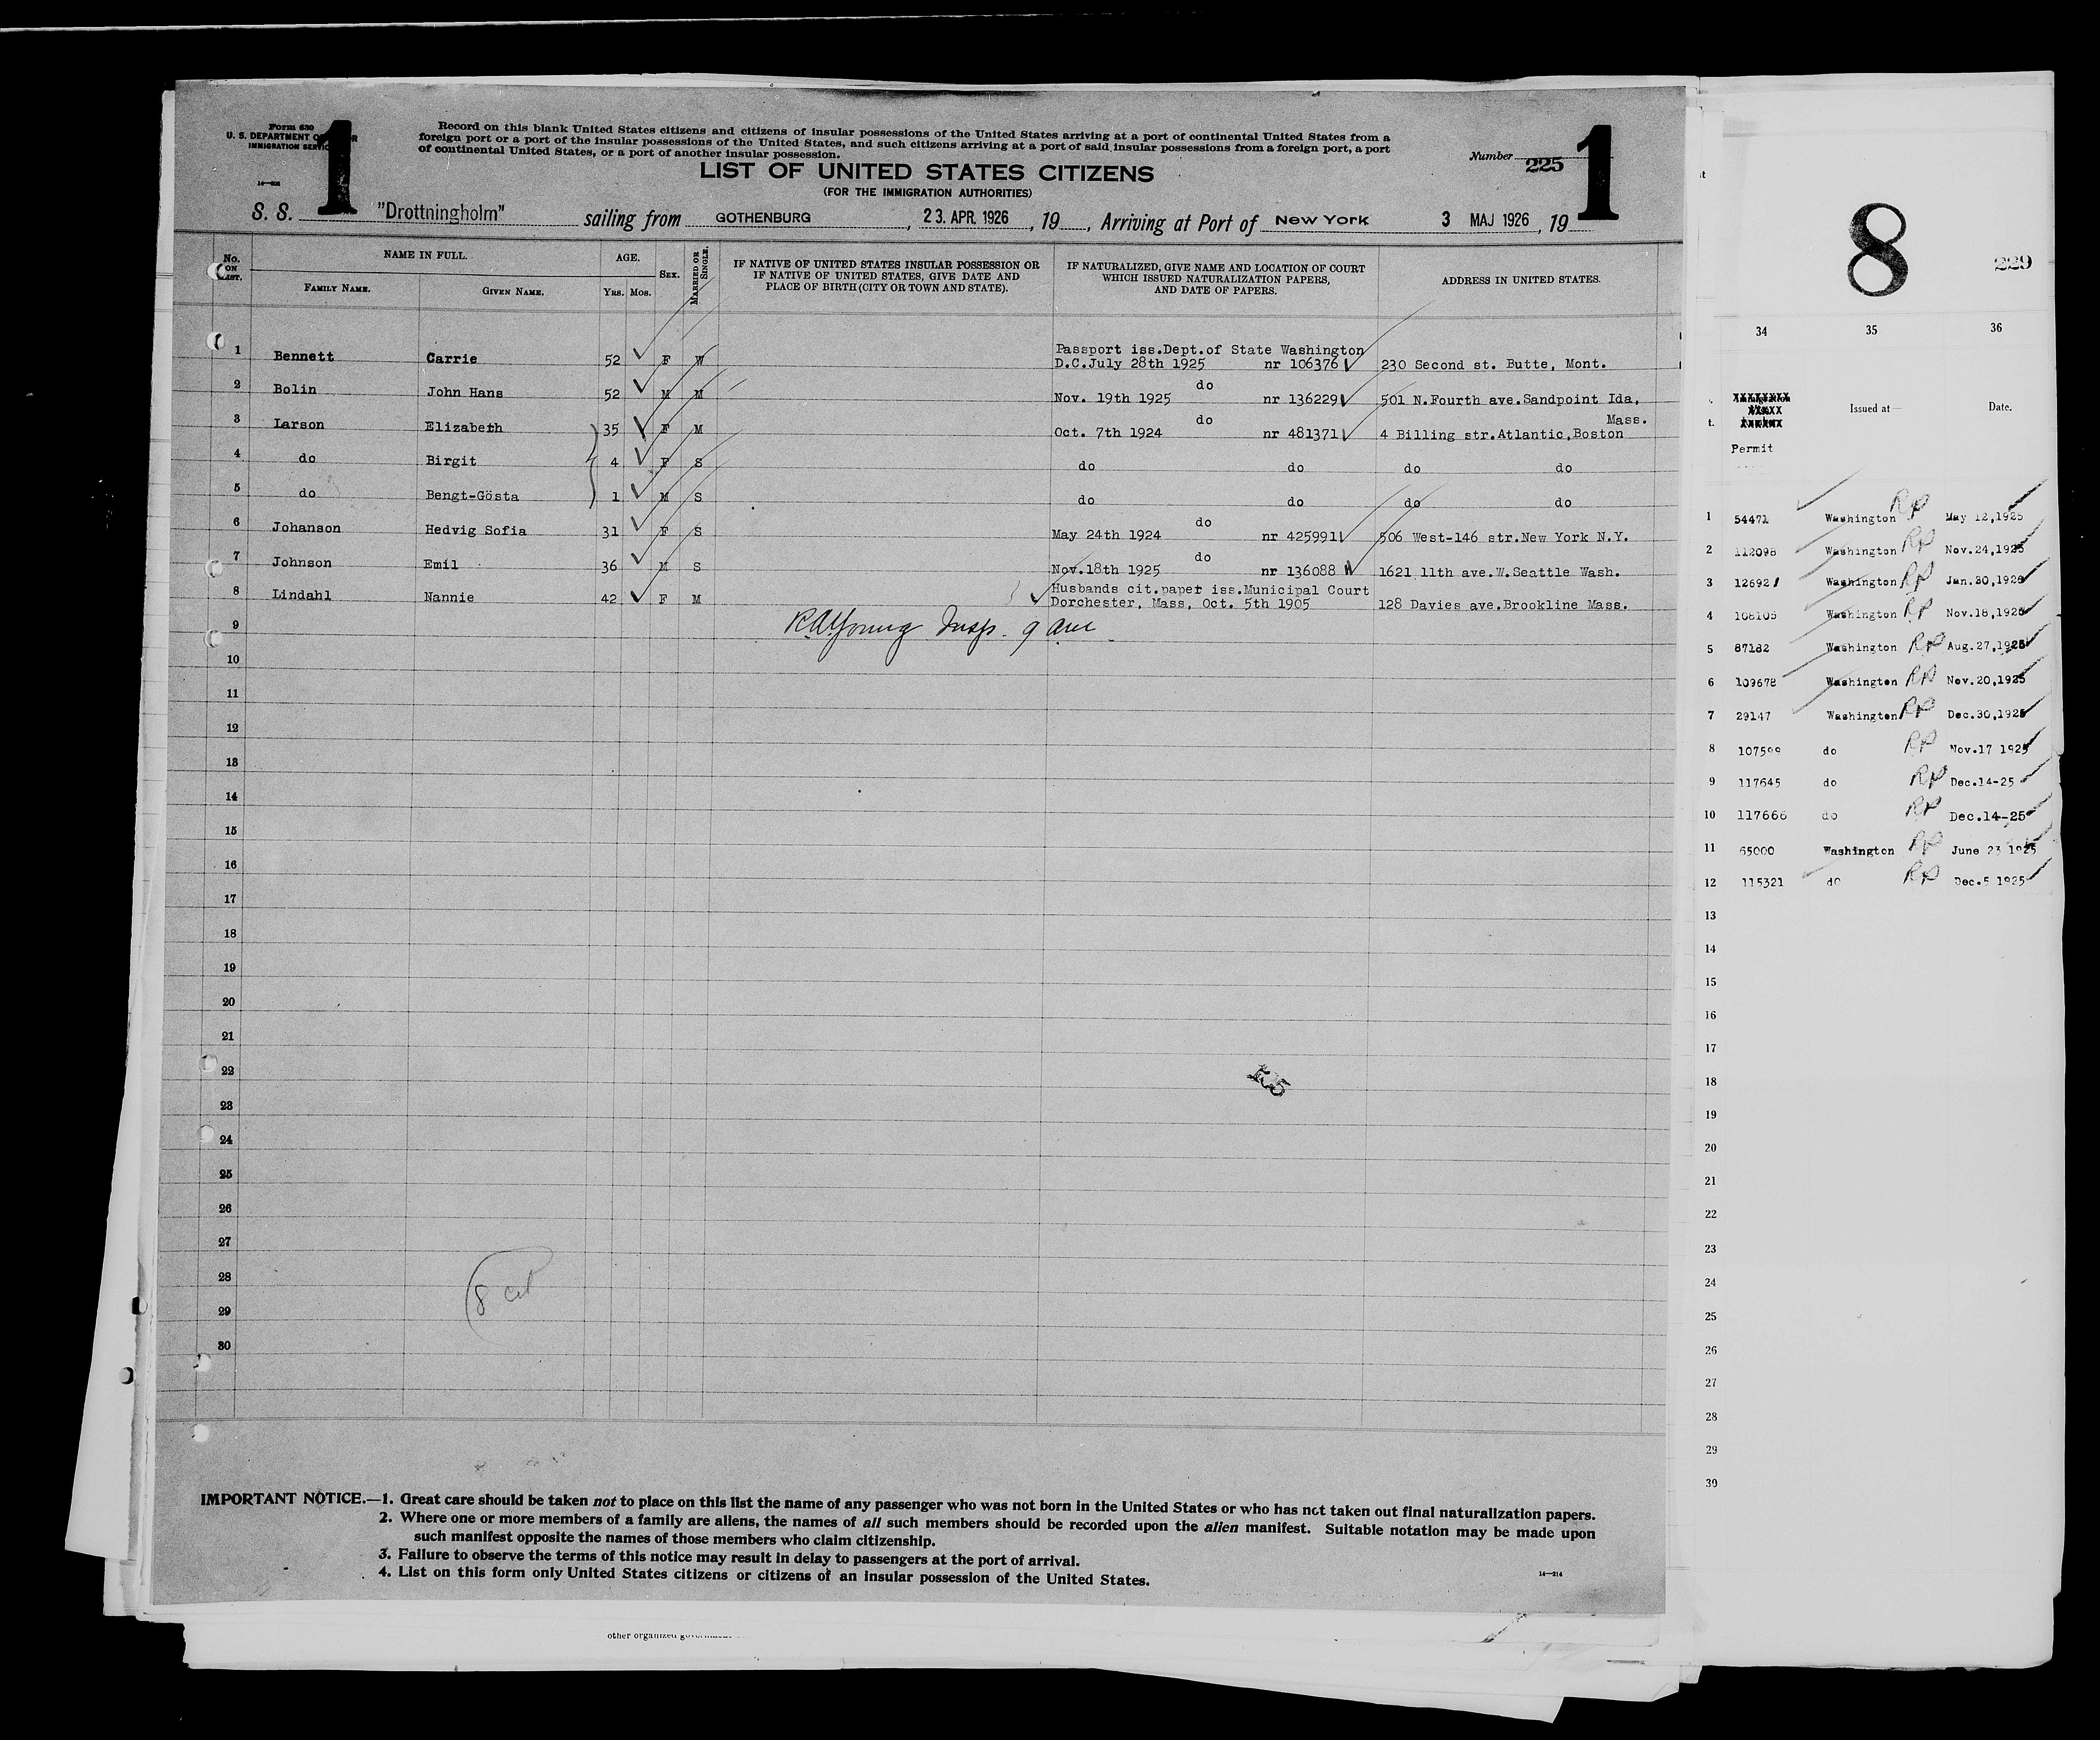 Form 630
U. S. DEPARTMENT OF
IMMIGRATION SERVICE
1
Record on this blank United States citizens and citizens of insular possessions of the United States arriving at a port of continental United States from a
foreign port or a port of the insular possessions of the United States, and such citizens arriving at a port of said insular possessions from a foreign port, a port
of continental United States, or a port of another insular possession.
LIST OF UNITED STATES CITIZENS
(FOR THE IMMIGRATION AUTHORITIES)
Number 225
1
S. S. "Drottningholm" sailing from GOTHENBURG, 23. APR. 1926, 19, Arriving at Port of New York 3 MAJ 1926, 19
No. ON LIST. NAME IN FULL. AGE. SEX. MARRIED OR SINGLE. IF NATIVE OF UNITED STATES INSULAR POSSESSION OR IF NATIVE OF UNITED STATES, GIVE DATE AND PLACE OF BIRTH (CITY OR TOWN AND STATE). IF NATURALIZED, GIVE NAME AND LOCATION OF COURT WHICH ISSUED NATURALIZATION PAPERS, AND DATE OF PAPERS. ADDRESS IN UNITED STATES.
FAMILY NAME. GIVEN NAME. YRS. MOS.
Passport iss.Dept.of State Washington
1 Bennett Carrie 52 F W D.C.July 28th 1925 nr 106376 230 Second st. Butte, Mont.
do
2 Bolin John Hans 52 M M Nov. 19th 1925 nr 136229 501 N.Fourth ave.Sandpoint Ida,
do Mass.
3 Larson Elizabeth 35 F M Oct. 7th 1924 nr 481371 4 Billing str.Atlantic,Boston
4 do Birgit 4 F S do do do do
5 do Bengt-Gösta 1 M S do do do do
do
6 Johanson Hedvig Sofia 31 F S May 24th 1924 nr 425991 506 West-146 str.New York N.Y.
do
7 Johnson Emil 36 M S Nov.18th 1925 nr 136088 1621 11th ave.W.Seattle Wash.
Husbands cit.paper iss.Municipal Court
8 Lindahl Nannie 42 F M Dorchester, Mass, Oct. 5th 1905 128 Davies ave.Brookline Mass.
9 RAYoung Insp. 9 am
10
11
12
13
14
15
16
17
18
19
20
21
22
23
24
25
26
27
28
29
30
8 cit
IMPORTANT NOTICE.—1. Great care should be taken not to place on this list the name of any passenger who was not born in the United States or who has not taken out final naturalization papers.
2. Where one or more members of a family are aliens, the names of all such members should be recorded upon the alien manifest. Suitable notation may be made upon
such manifest opposite the names of those members who claim citizenship.
3. Failure to observe the terms of this notice may result in delay to passengers at the port of arrival.
4. List on this form only United States citizens or citizens of an insular possession of the United States.
14—214
other organized
8
229
34 35 36
Issued at— Date.
Permit
1 54471 Washington RP May 12,1925
2 112098 Washington RP Nov.24,1925
3 12692 Washington RP Jan.30,1926
4 108105 Washington RP Nov.18,1925
5 87182 Washington RP Aug.27,1925
6 109678 Washington RP Nov.20,1925
7 29147 Washington RP Dec.30,1925
8 107599 do RP Nov.17 1925
9 117645 do RP Dec.14-25
10 117666 do RP Dec.14-25
11 65000 Washington RP June 23 1925
12 115321 do RP Dec.5 1925
13
14
15
16
17
18
19
20
21
22
23
24
25
26
27
28
29
30